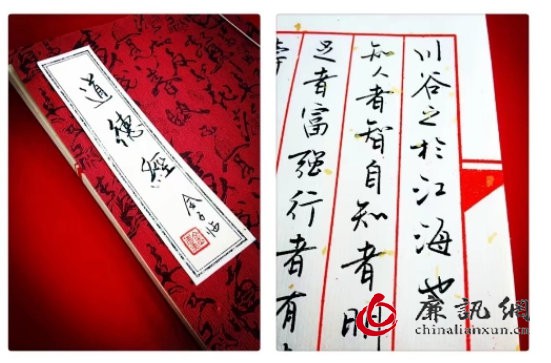 道德經
川谷之於江海也
知人者智自知者明
足者富强行者有
廉訊網
chinalianxun.com.cn